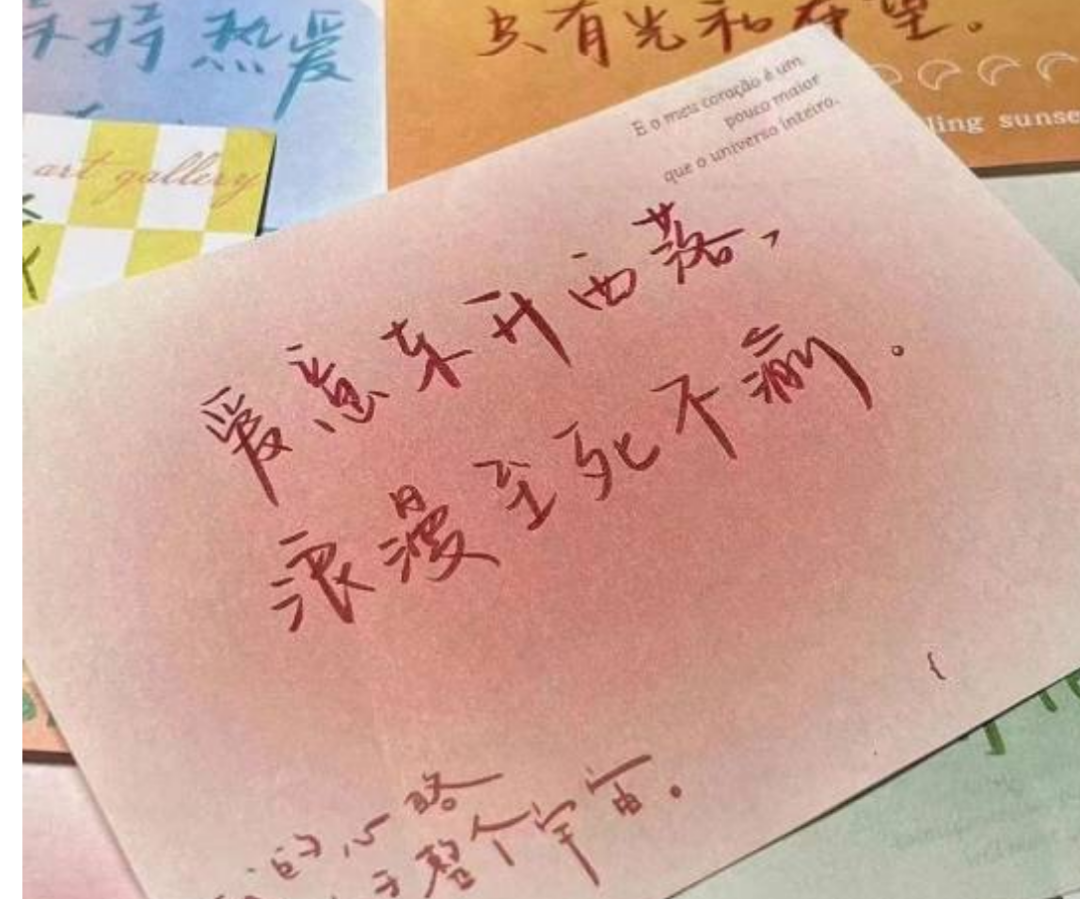 持热爱
只有光和希望。
ling sunse
art gallery
E o meu coração é um
pouco maior
que o universo inteiro.
爱意东升西落，
浪漫至死不渝。
的心略
于整个宇宙。